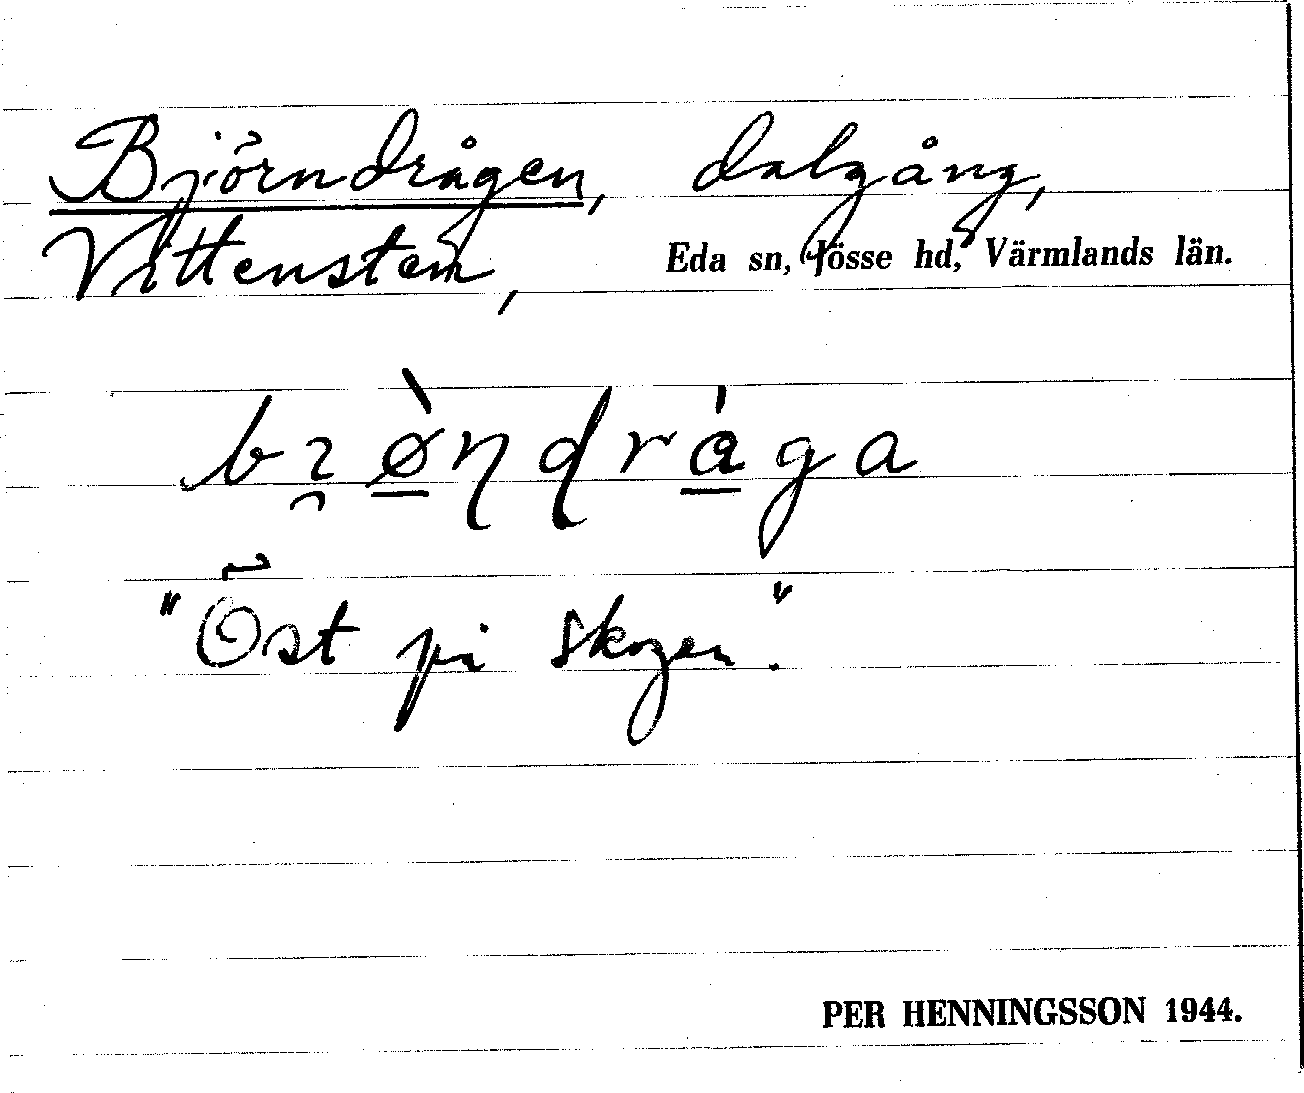 Björndrågen, dalgång,
Vittensten, Eda sn, Jösse hd, Värmlands län.
"Öst på skogen."
PER HENNINGSSON 1944.